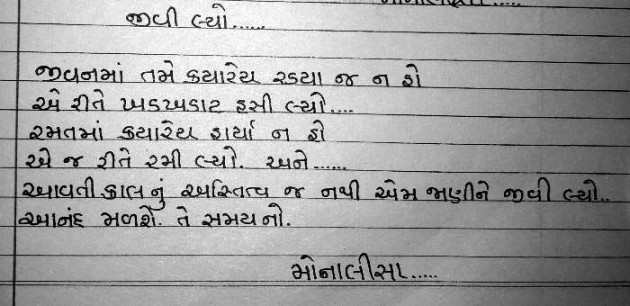 જીવી લ્યો......
જીવનમાં તમે ક્યારેય રડ્યા જ ન હો
એ રીતે ખડખડાટ હસી લ્યો....
રમતમાં ક્યારેય હાર્યા ન હો
એ જ રીતે રમી લ્યો. અને......
આવતીકાલનું અસ્તિત્વ જ નથી એમ જાણીને જીવી લ્યો..
આનંદ મળશે. તે સમયનો.
મોનાલીસા.....